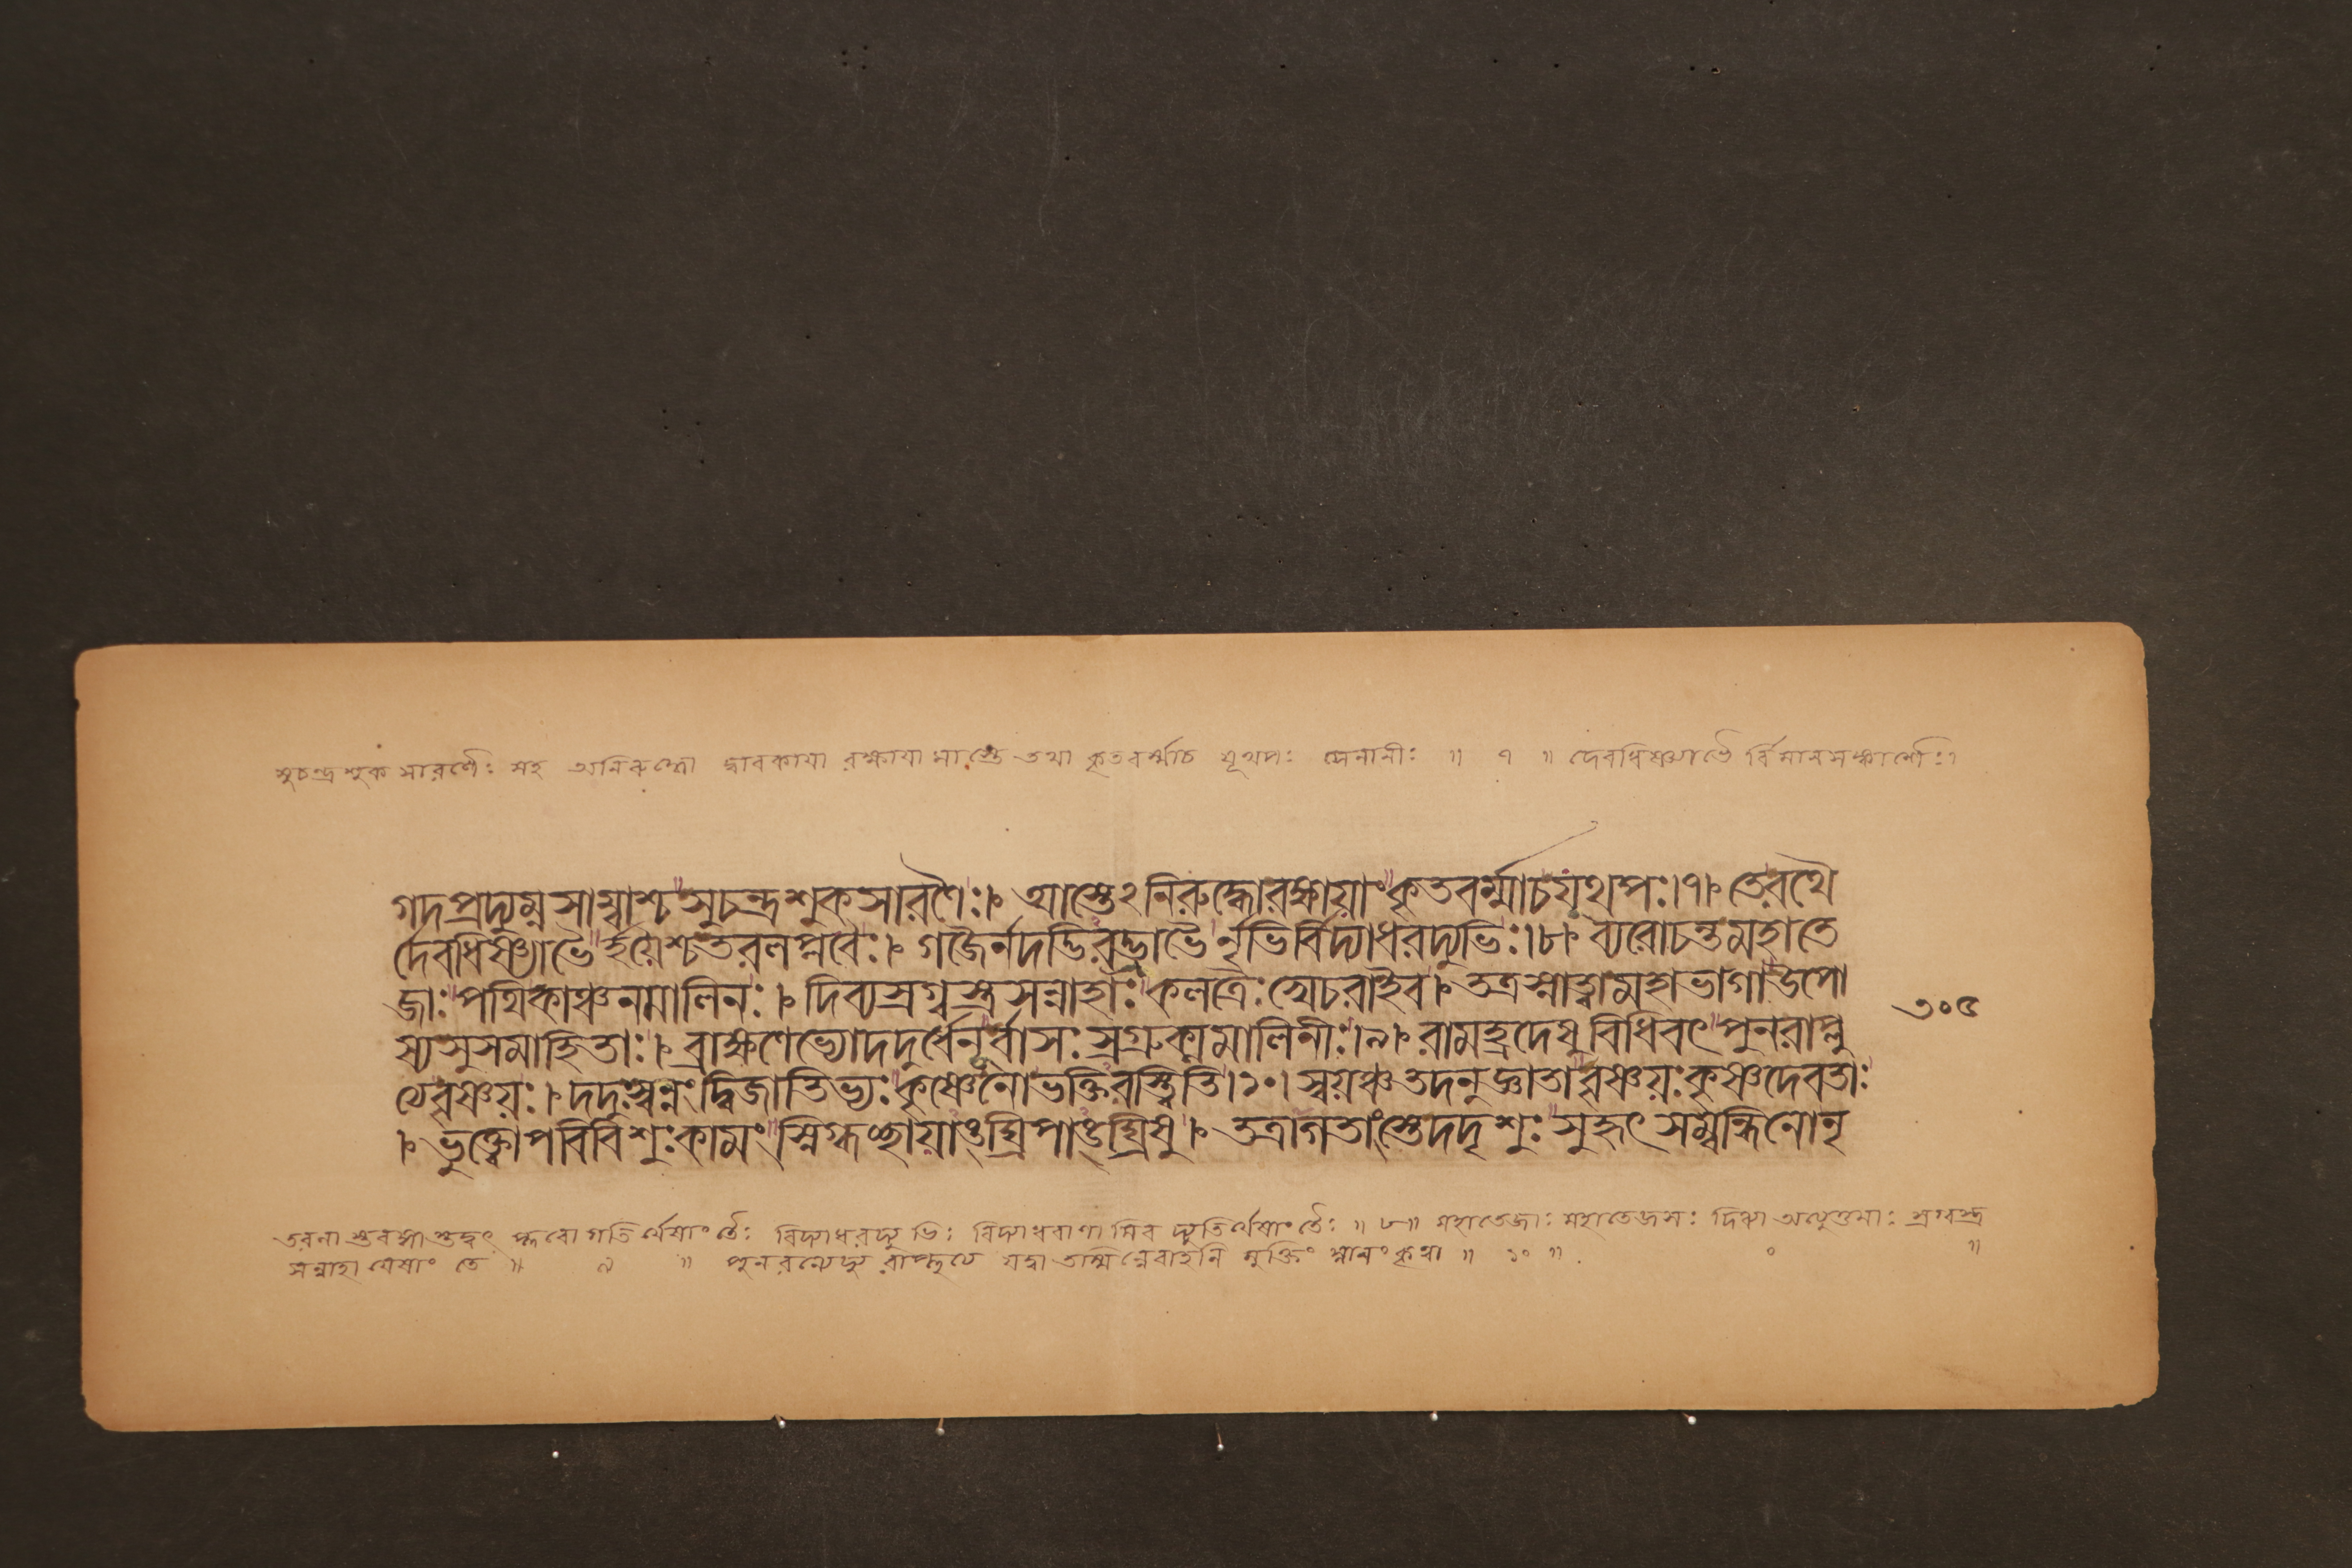 সুচন্দ্র শুক সারণৈঃ সহ অনিরুদ্ধো দ্বারকায়া রক্ষায়া মাস্তে তথা কৃতবর্ম্মাচ যূথপঃ সেনানীঃ ॥ ৭ ॥ দেবধিষ্ণ্যাভৈ র্বিমানসঙ্কাশৈঃ।
গদপ্রদ্যুম্নসাম্বাশ্চ সুচন্দ্রশুকসারণৈঃ। আস্তেঽনিরুদ্ধোরক্ষায়াং কৃতবর্ম্মাচযূথপঃ।৭। তেরথৈ
র্দেবধিষ্ণ্যাভৈর্হয়ৈশ্চতরলপ্লবৈঃ। গজৈর্নদদ্ভিরভ্রাভৈর্নৃভির্বিদ্যাধরদ্যুভিঃ।৮। ব্যরোচন্তমহাতে
জাঃ পথিকাঞ্চনমালিনঃ। দিব্যস্রগ্বস্ত্রসন্নাহাঃ কলত্রৈঃ খেচরাইব। তত্রস্নাত্বামহাভাগাউপো
ষ্যসুসমাহিতাঃ। ব্রাহ্মণেভ্যোদদুর্ধেনূর্বাসঃ স্রগ্রুক্মমালিনীঃ।৯। রামহ্রদেষুবিধিবৎ পুনরাপ্লু
ত্যেবৃষ্ণয়ঃ। দদুঃস্বন্নং দ্বিজাতিভ্যঃ কৃষ্ণেনোভক্তিরস্ত্বিতি।১০। স্বয়ঞ্চতদনুজ্ঞাতাবৃষ্ণয়ঃ কৃষ্ণদেবতাঃ
। ভুক্ত্বোপবিবিশুঃকামং স্নিগ্ধচ্ছায়াঙ্ঘ্রিপাঙ্ঘ্রিষু। তত্রাগতাংস্তেদদৃশুঃ সুহৃৎ সম্বন্ধিনোনৃ
৩০৫
বিদ্যাধরদ্যুভিঃ বিদ্যাধরাণা মিব দ্যুতির্যেষাং তৈঃ ॥ ৮ ॥ মহাতেজাঃ মহাতেজসঃ দিব্যা অত্যুত্তমাঃ স্রগ্বস্ত্র
সন্নাহা যেষাং তে ॥ ৯ ॥ পুনরন্যেদ্যু রাপ্লুত্যে যদ্বা তস্মিন্নেবাহনি মুক্তি স্নানং কৃত্বা ॥ ১০ ॥